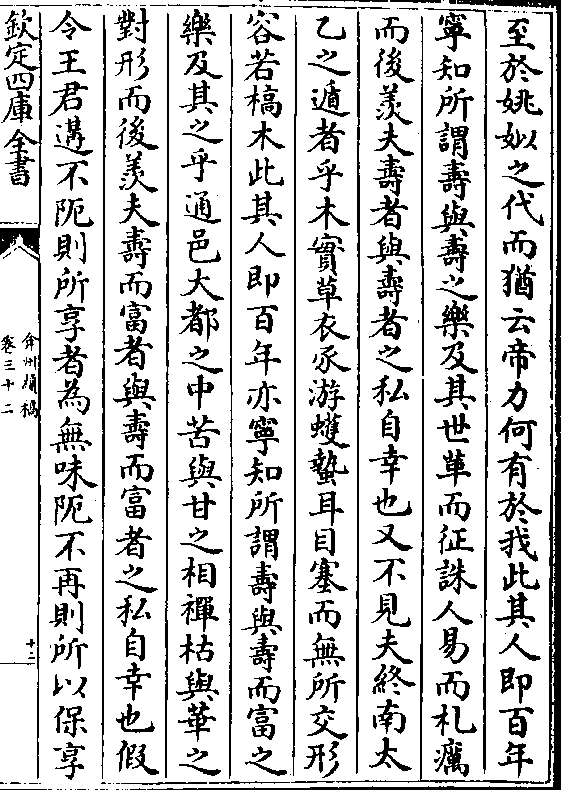 至於姚姒之代而猶云帝力何有於我此其人即百年
寧知所謂壽與壽之樂及其世革而征誅人易而札癘
而後羡夫壽者與壽者之私自幸也又不見夫終南太
乙之遁者乎木實草衣豕游蠖蟄耳目塞而無所交形
容若槁木此其人即百年亦寧知所謂壽與壽而富之
樂及其之乎通邑大都之中苦與甘之相禪枯與華之
對形而後羡夫壽而富者與壽而富者之私自幸也假
令王君遘不阨則所享者為無味阨不再則所以保享
欽定四庫全書
弇州續稿
卷三十二
十二